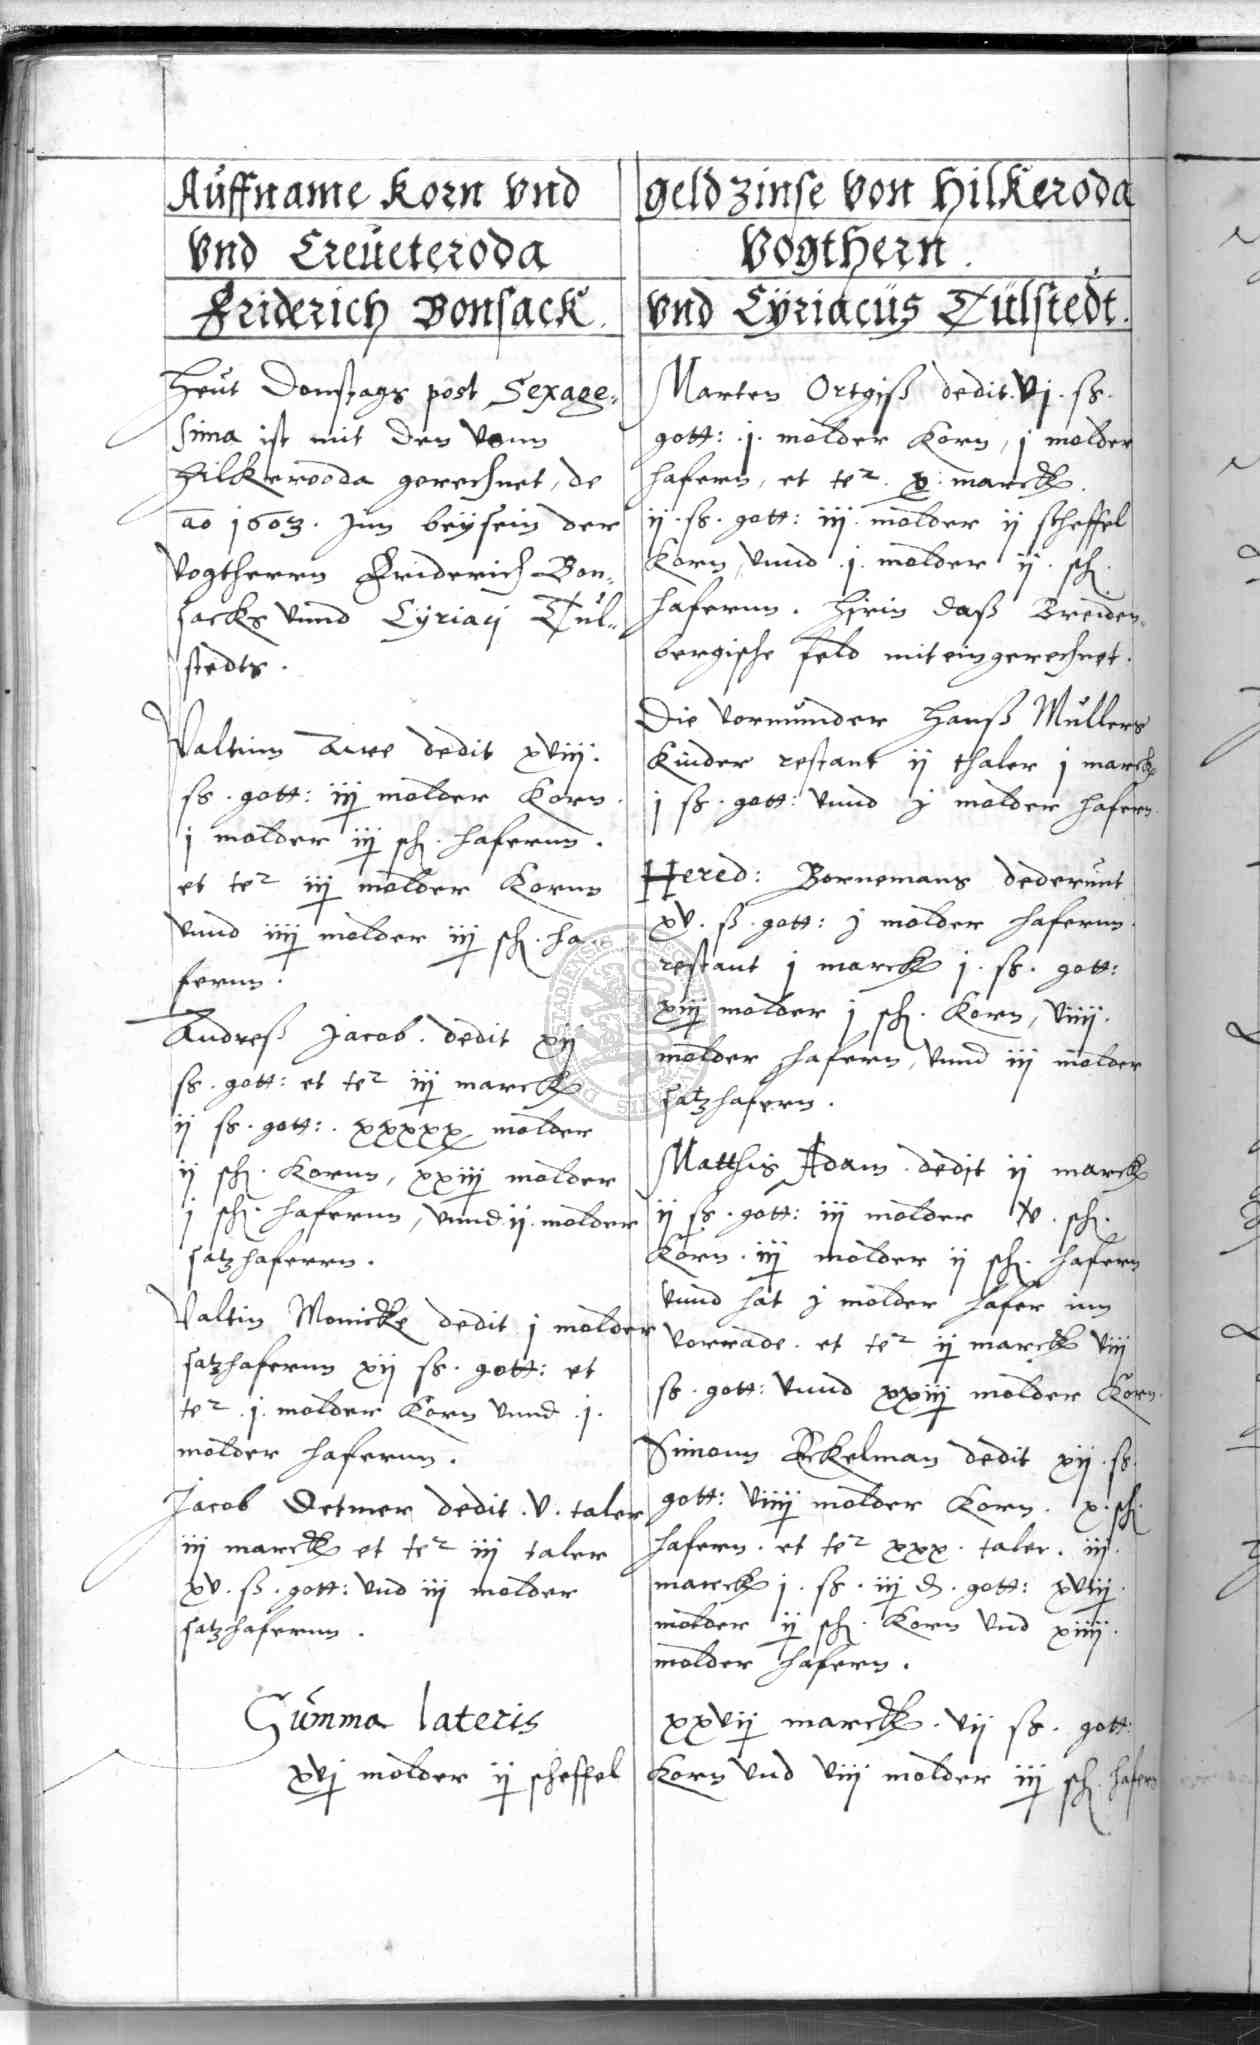 Auffname Korn vnd geldzinse von Hilkeroda
vnd Creueteroda Vogthern.
Friderich Bonsack. vnd Cÿriacüs Tülstedt.
Heut Donstags post Sexage-
sima ist mit den vonn
Hilkerooda gerechnet, de
ao 1603. Jnn beÿsein der
Vogtherrn Friderich Bon-
sacks vnnd Cÿriacj Tul-
stedts.
Valtinn dedit xviij.
ss. gott: iij molder Korn.
j molder iij sch. hafernn.
et ter iij molder Kornn
vnnd iiij molder iij sch. ha-
fernn.
Andreß Jacob. dedit xij
ss. gott: et ter iij marck
ij ss. gott: xxxxx molder
ij sch. Kornn, xxiij molder
j sch. hafernn, vnnd ij molder
satzhafernn.
Valtin Monicke dedit j molder
satzhafernn xij ss. gott: et
ter .j. molder Korn vnnd .j.
molder hafernn.
Jacob Detmer dedit .v. taler
iij marck et ter iij taler
xv. ß. gott: vnd iij molder
satzhafernn.
Marten Ortgiß dedit. vj. ss.
gott: .j. molder Korn, j molder
hafern, et ter. x. marck.
ij. ss. gott: iij. molder ij scheffel
Korn, vnnd .j. molder ij. sch.
hafernn. Hirin daß Breiden-
bergische feld miteingerechnet.
Die vormunder Hanß Mullers
Kinder restant ij thaler j marck
j ss. gott: vnnd j molder hafern.
Hered: Bornemans dederunt
xv. ß. gott: j molder hafernn.
restant j marck j. ss. gott:
xiij molder j sch. Korn, viiij.
molder hafern, vnnd iij molder
satzhafern.
Matthis Adam dedit ij marck
ij ss. gott: iij molder v. sch.
Korn. iij molder ij sch. hafern
vnnd hat j molder hafer inn
vorrade. et ter ij marck viij
ss. gott: vnnd xxiij molder Korn.
Simonn Eckelman dedit xij. ss.
gott: viiij molder Korn. x. sch.
hafern. et ter xxx. taler. iij.
marck j. ss. iij d. gott: xviij.
molder ij sch. Korn vnd xiiij.
molder hafern.
Summa lateris xxvij marck. vij ss. gott:
xvj molder ij scheffel Korn vnd viij molder iij sch. hafern